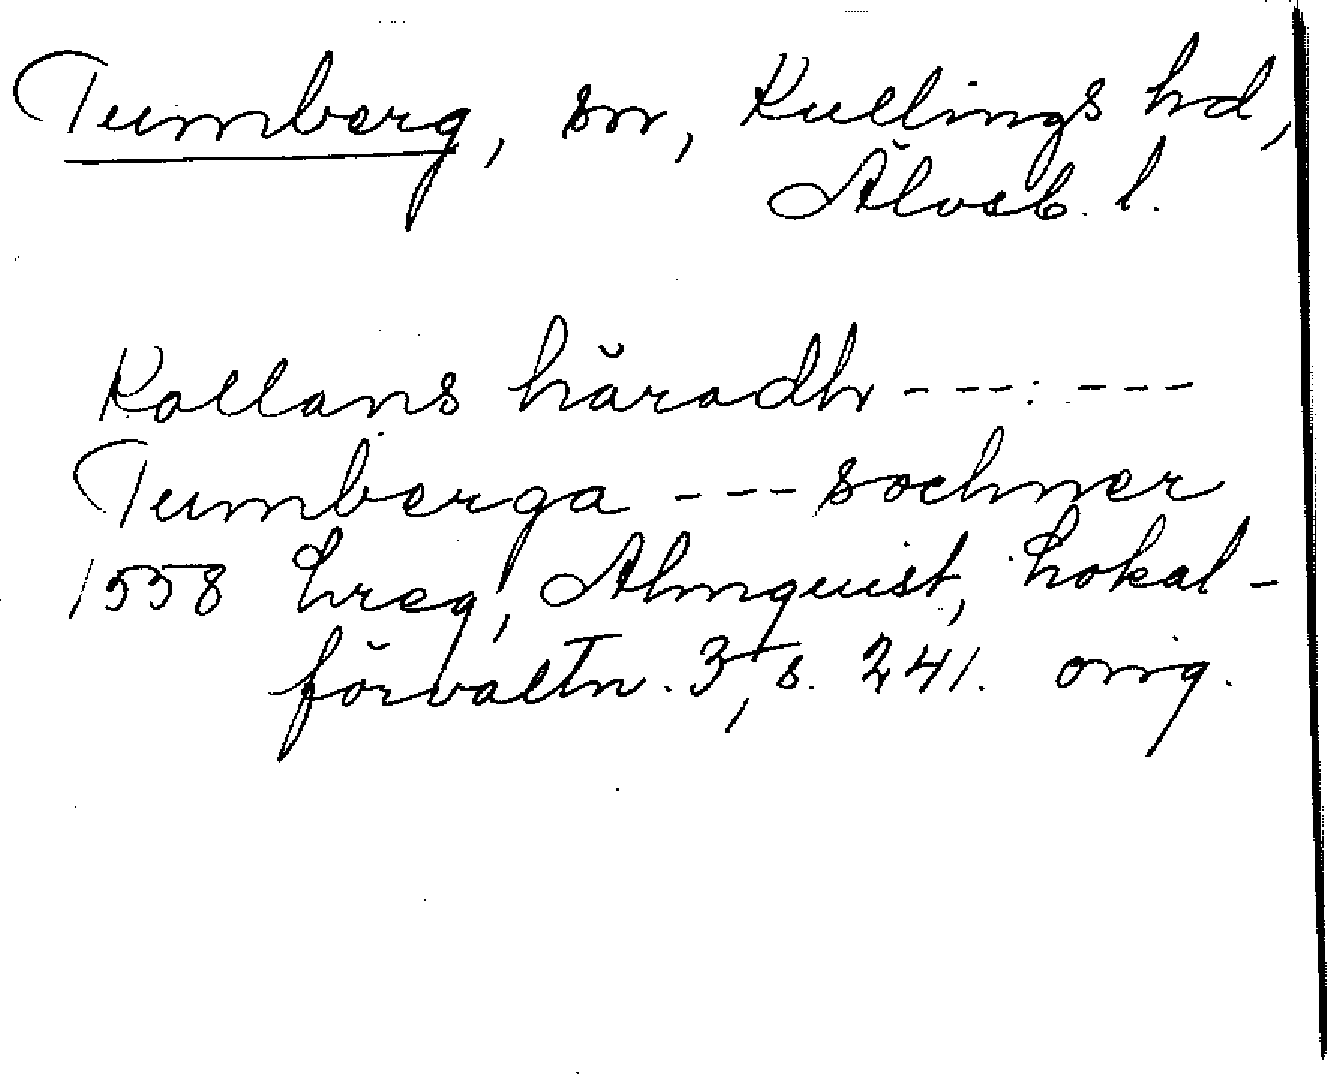 Tumberg, sn, Kullings hd,
Älvsb. l.
Kollans häradh ---: ---
Tumberga --- sochner
1558 Lreg, Almquist, Lokal-
förvaltn. 3, s. 241. orig.